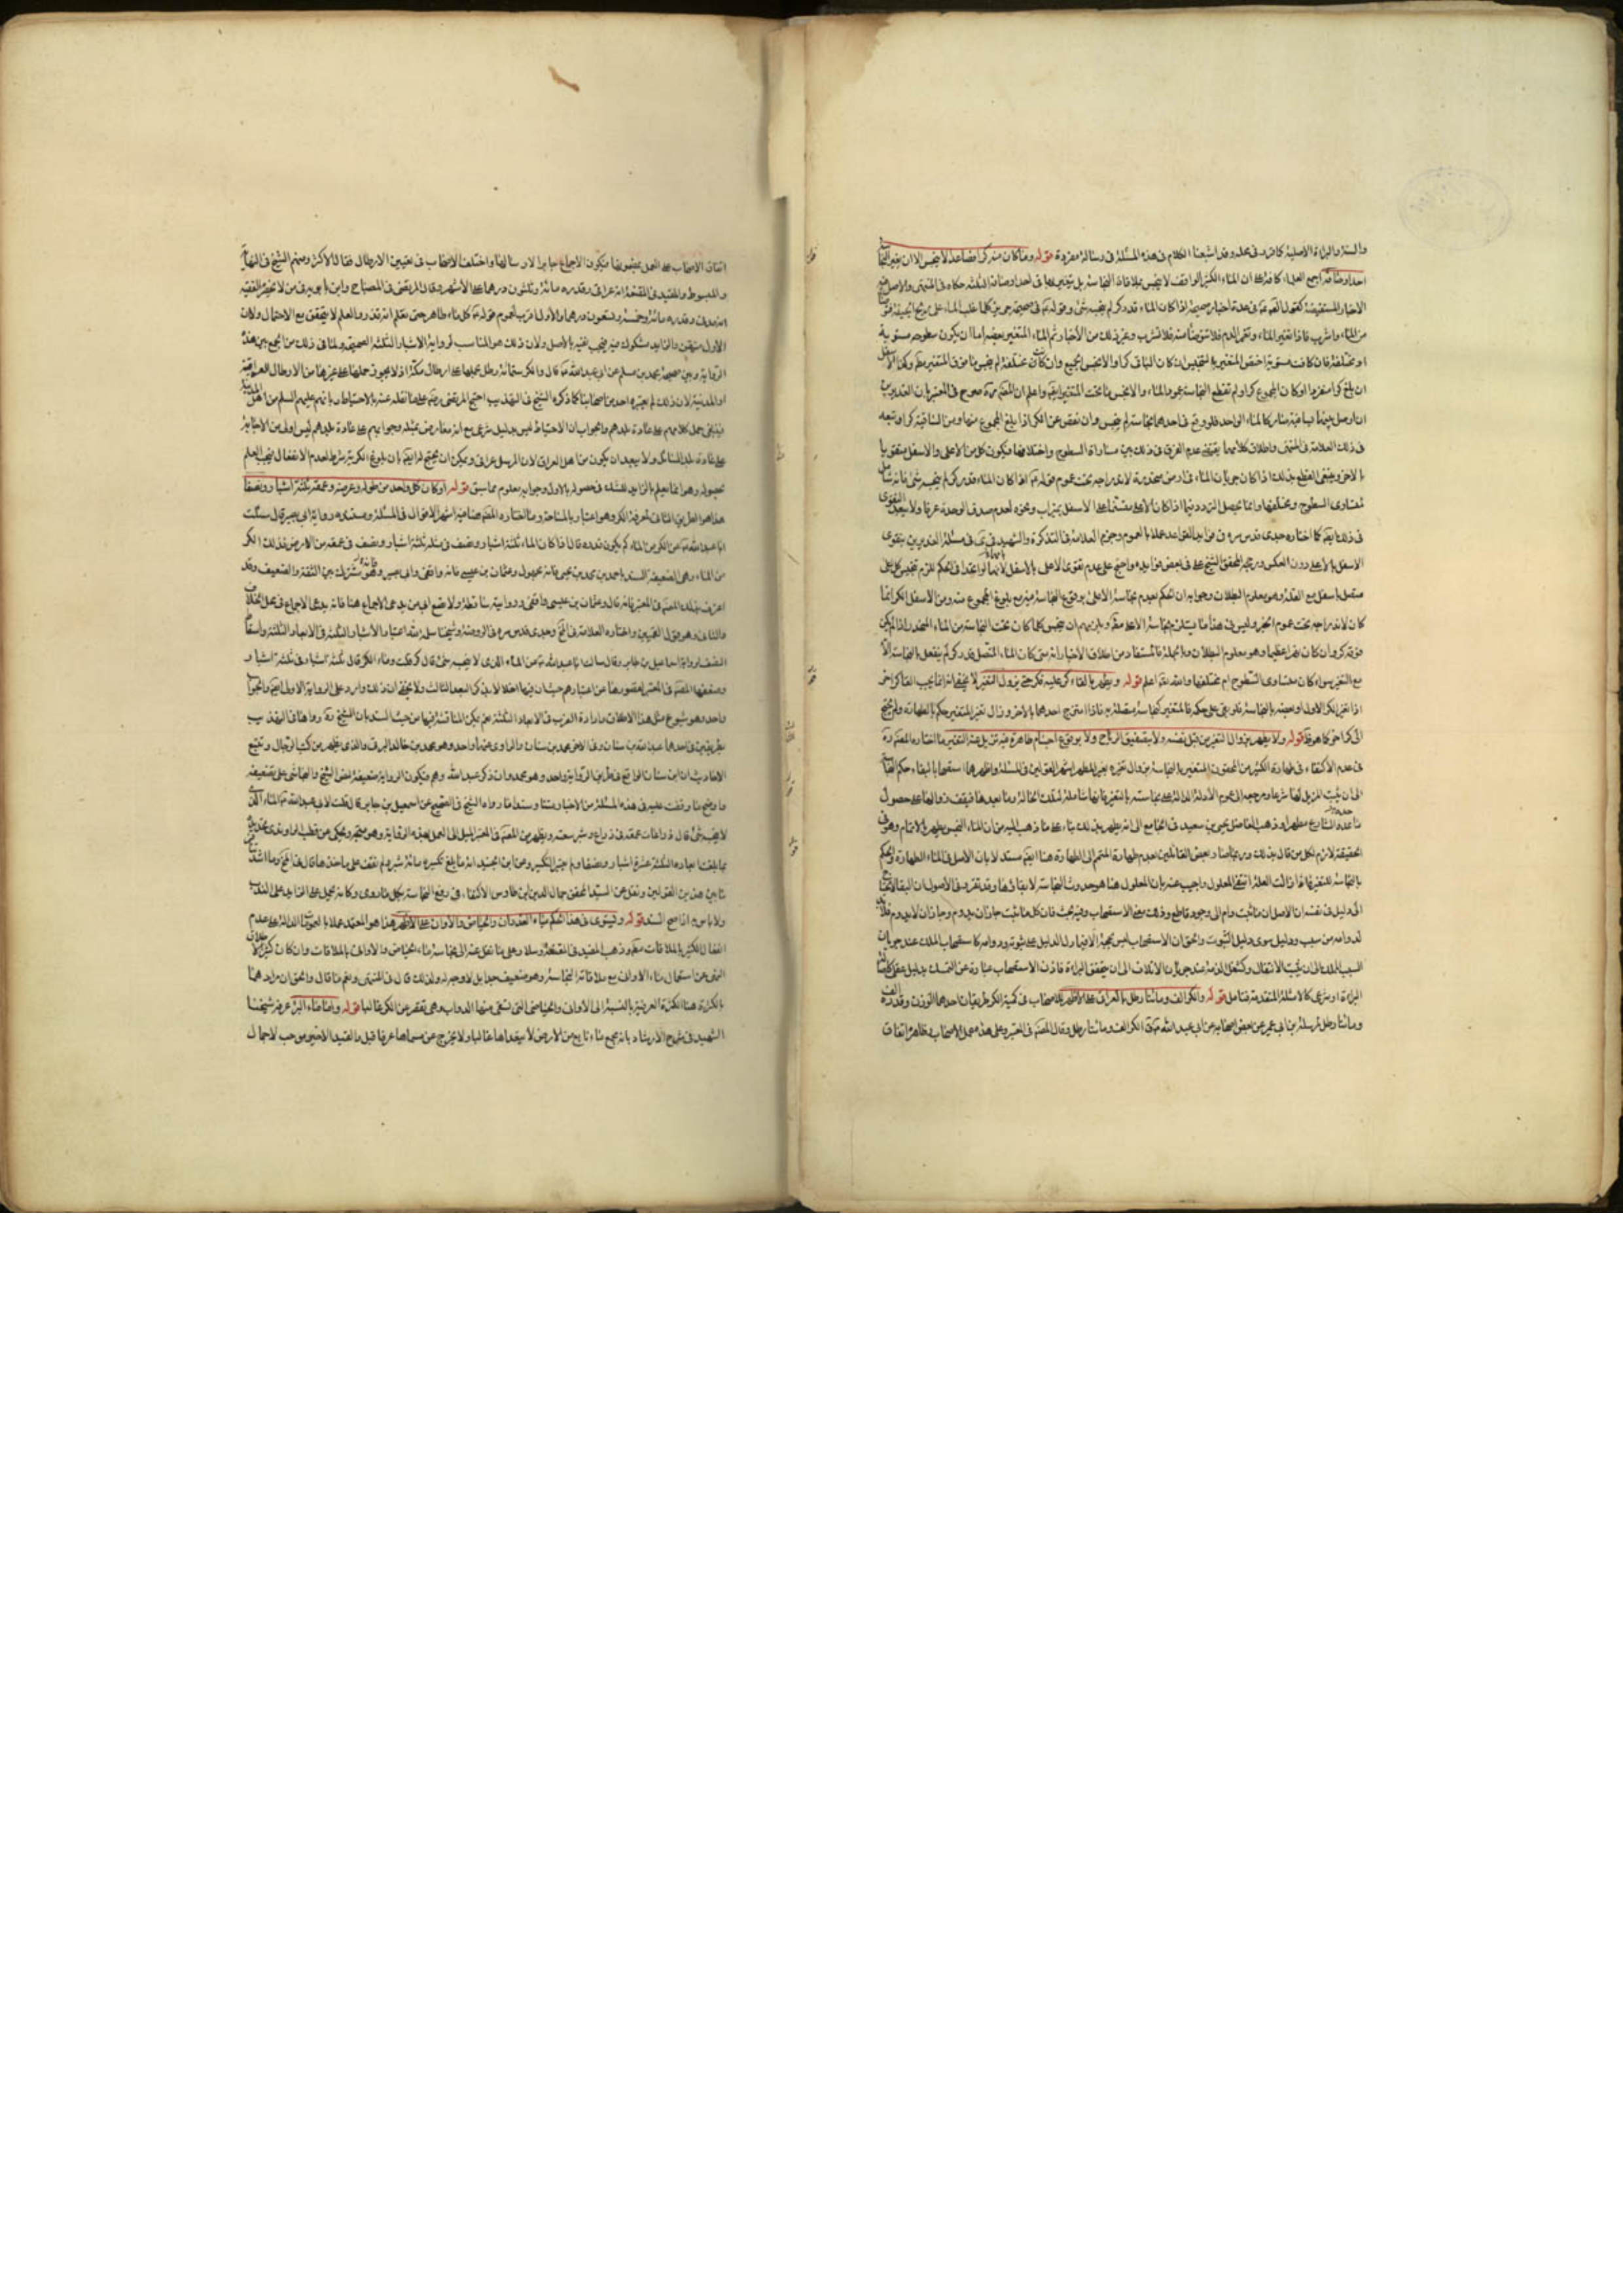 والسنة والبراءة الاصلية كما قرر فى محله وقد اشبعنا الكلام فى هذه المسئلة فى رسالة مفردة قوله وما كان منه كرا فصاعدا لا ينجس الا ان يغير النجاسة
احد اوصافه اجمع العلماء كافة على ان الماء الكثير الواقف لا ينجس بملاقاة النجاسة بل بتغيره بها فى احد اوصافه الثلثة حكاه فى المنتهى والاصل فيه
الاخبار المستفيضة كقول الصادق فى عدة اخبار صحيحة اذا كان الماء قدر كر لم ينجسه شئ وقوله فى صحيحة حريز كلما غلب الماء على ريح الجيفة فتوضأ
من الماء واشرب فاذا تغير الماء وتغير الطعم فلا تتوضأ منه ولا تشرب وغير ذلك من الأخبار ثم الماء المتغير بعضه اما ان يكون سطوحه مستوية
او مختلفة فان كانت مستوية اختص المتغير بالتنجيس ان كان الباقى كرا والا نجس الجميع وان كانت مختلفة لم ينجس ما فوق المتغير مطلقا وكذا الاسفل
ان بلغ كرا منفردا او كان المجموع كرا ولم تقطع النجاسة عمود الماء والا نجس ما تحت المتغير ايضا واعلم ان المصنف ره صرح فى المعتبر بان الغديرين
اذا وصل بينهما بساقية صارا كالماء الواحد فلو وقع فى احدهما نجاسة لم ينجس وان نقص عن الكر اذا بلغ المجموع منهما ومن الساقية كرا وتبعه
فى ذلك العلامة فى المنتهى واطلاق كلامهما يقتضى عدم الفرق فى ذلك بين مساواة السطوح واختلافها فيكون كل من الاعلى والاسفل متقويا
بالاخر وينبغى القطع بذلك اذا كان جريان الماء فى ارض منحدرة لاندراجه تحت عموم قوله اذا كان الماء قدر كر لم ينجسه شئ فانه شامل
لمتساوى السطوح ومختلفها وانما يحصل التردد فيما اذا كان الاعلى متسنما على الاسفل بميزاب ونحوه لعدم صدق الوحدة عرفا ولا يبعد التقوى
فى ذلك ايضا كما اختاره جدى قدس سره فى فوايد القواعد عملا بالعموم وجزم العلامة فى التذكرة والشهيد فى مسئلة الغديرين بتقوى
الاسفل بالاعلى دون العكس ورجحه المحقق الشيخ على فى بعض فوايده واحتج على عدم تقوى الاعلى بالاسفل بانهما لو اتحدا فى الحكم للزم تنجيس كل اعلى
متصل باسفل مع القلة وهو معلوم البطلان وجوابه ان الحكم بعدم نجاسة الاعلى بوقوع النجاسة فيه مع بلوغ المجموع منه ومن الاسفل الكر انما
كان لاندراجه تحت عموم الخبر وليس فى هذا ما يستلزم نجاسة الاعلى بنجاسة الاسفل بوجه
فوقه كر وان كان نهرا عظيما وهو معلوم البطلان وبالجملة فالمستفاد من اطلاق الاخبار انه متى كان الماء المتصل قدر كر لم ينفعل بالنجاسة الا
مع التغير سواء كان متساوى السطوح ام مختلفها والله اعلم قوله ويطهر بالقاء كر عليه فكر حتى يزول التغير لا يخفى انه انما يجب القاء كر اخر
اذا تغير الكر الاول او بعضه بالنجاسة فلو بقى على حكمه فالمتغير كنجاسة متصلة به فاذا امتزج احدهما بالاخر وزال تغير المتغير حكم بالطهارة ولم يحتج
الى كر اخر كما هو قوله ولا يطهر بزوال التغير من قبل نفسه ولا بتصفيق الرياح ولا بوقوع اجسام طاهرة فيه تزيل عنه التغير ما اختاره المصنف ره
فى عدم الاكتفاء فى طهارة الكثير من المحقون المتغير بالنجاسة بزوال تغيره بغير المطهر اشهر القولين فى المسئلة واظهرهما استصحابا لبقاء حكم النجاسة
الى ان يثبت المزيل لها شرعا ومرجعه الى عموم الادلة الدالة على نجاسته بالتغير فانها شاملة لتلك الحالة وما بعدها فيقف زوالها على حصول
ما عده الشارع مطهرا وذهب الفاضل يحيى بن سعيد فى الجامع الى انه يطهر بذلك بناء على ما ذهب اليه من ان الماء النجس يطهر بالاتمام وهو فى
الحقيقة لازم لكل من قال بذلك وربما صار بعض القائلين بعدم طهارة المتمم الى الطهارة هنا ايضا مستدلا بان الاصل فى الماء الطهارة والحكم
بالنجاسة للتغير فاذا زالت العلة انتفى المعلول واجيب عنه بان المعلول هنا هو حدوث النجاسة لا بقاؤها وقد تقرر فى الاصول ان البقاء لا يحتاج
الى دليل فى نفسه اذ الاصل ان ما ثبت دام الى وجود قاطع وذلك معنى الاستصحاب وفيه بحث فان كل ما ثبت جاز ان يدوم وجاز ان لا يدوم فلابد
لدوامه من سبب ودليل سوى دليل الثبوت والحق ان الاستصحاب ليس بحجة الا فيما دل الدليل على ثبوته ودوامه كاستصحاب الملك عند جريان
السبب المملك الى ان يثبت الانتقال وكشغل الذمة عند جريان الاتلاف الى ان يتحقق البراءة فاذن الاستصحاب عبارة عن التمسك بدليل عقلى كاصالة
البراءة او شرعى كالامثلة المتقدمة فتامل قوله والكر الف ومائتا رطل بالعراقى على الاظهر للاصحاب فى كمية الكر طريقان احدهما الوزن وقدره الف
ومائتا رطل لمرسلة ابن ابى عمير عن بعض اصحابه عن ابى عبد الله ع قال الكر الف ومائتا رطل وقال المصنف فى المعتبر وعلى هذه عمل الاصحاب وظاهره اتفاق
اتفاق الاصحاب على العمل بمضمونها فيكون الاجماع جابرا لارسالها واختلف الاصحاب فى تعيين الارطال فقال الاكثر ومنهم الشيخ فى النهاية
والمبسوط والمفيد فى المقنعة انه عراقى وقدره مائة وثلثون درهما على الاشهر وقال المرتضى فى المصباح وابن بابويه فى من لا يحضره الفقيه
انه مدنى وقدره مائة وخمسة وتسعون درهما والأول اقرب لعموم قوله كل ماء طاهر حتى تعلم انه قذر والعلم لا يتحقق مع الاحتمال ولان
الاول متيقن والزايد مشكوك فيه فيجب نفيه بالاصل ولان ذلك هو المناسب لرواية الاشبار الثلثة الصحيحة ولما فى ذلك من الجمع بين هذه
الرواية وبين صحيحة محمد بن مسلم عن ابى عبد الله ع قال والكر ستمائة رطل بحملها على ارطال مكة اذ لا يجوز حملها على غيرها من الارطال العراقية
او المدنية لان ذلك لم يعتبره احد من اصحابنا كما ذكره الشيخ فى التهذيب احتج المرتضى رضى على ما نقل عنه بالاحتياط وبانهم عليهم السلم من اهل المدينة
فينبغى حمل كلامهم على عادة بلدهم والجواب ان الاحتياط ليس بدليل شرعى مع انه معارض بمثله وجوابهم على عادة بلدهم ليس اولى من الاجابة
على عادة بلد السائل ولا يبعد ان يكون من اهل العراق لان المرسل عراقى ويمكن ان يحتج له ايضا بان بلوغ الكرية شرط لعدم الانفعال فيجب العلم
بحصوله وهو انما يعلم بالزايد للشك فى حصوله بالاول وجوابه معلوم مما سبق قوله او كان كل واحد من طوله وعرضه وعمقه ثلثة اشبار ونصفا
هذا هو الطريق الثانى لمعرفة الكر وهو اعتباره بالمساحة وما اختاره المصنف هنا هو اشهر الاقوال فى المسئلة ومستنده رواية ابى بصير قال سئلت
ابا عبد الله عن الكر من الماء كم يكون قدره قال اذا كان الماء ثلثة اشبار ونصف فى مثله ثلثة اشبار ونصف فى عمقه من الارض فذلك الكر
من الماء وهى ضعيفة السند باحمد بن محمد بن يحيى فانه مجهول وعثمان بن عيسى فانه واقفى وابى بصير وهو مشترك بين الثقة والضعيف وقد
اعترف بذلك المصنف فى المعتبر فانه قال وعثمان بن عيسى واقفى فروايته ساقطة ولا تصغ الى من يدعى الاجماع هنا فانه يدعى الاجماع فى محل الخلاف
والثانى وهو قول القميين واختاره العلامة فى المختلف وجدى قدس سره فى الروضة وشيخنا سلمه الله اعتبار الاشبار الثلثة فى الابعاد الثلثة واسقاط
النصف لرواية اسماعيل بن جابر قال سالت ابا عبد الله ع عن الماء الذى لا ينجسه شئ قال كر قلت وما الكر قال ثلثة اشبار فى ثلثة اشبار و
وضعفها المصنف فى المعتبر
واحد وهو شيوع مثل هذا الاطلاق وارادة الضرب فى الابعاد الثلثة نعم يمكن المناقشة فيها من حيث السند بان الشيخ ره رواها فى التهذيب
بطريقين فى احدهما عبد الله بن سنان وفى الاخر محمد بن سنان والراوى عنهما واحد وهو محمد بن خالد البرقى والذى يظهر من كتب الرجال وتتبع
الاحاديث ان ابن سنان الواقع فى طريق الرواية واحد وهو محمد وان ذكر عبد الله وهم فتكون الرواية ضعيفة لنص الشيخ والنجاشى على تضعيفه
واوضح ما وقفت عليه فى هذه المسئلة من الاخبار متنا وسندا ما رواه الشيخ فى الصحيح عن اسمعيل بن جابر قال قلت لابى عبد الله ع الماء الذى
لا ينجسه شئ قال ذراعان عمقه فى ذراع وشبر سعته ويظهر من المصنف فى المعتبر الميل الى العمل بهذه الرواية وهو متجه ويحكى عن قطب الراوندى تحديده
بما بلغت ابعاده الثلثة عشرة اشبار ونصفا ولم يعتبر التكسير وعن ابن الجنيد انه ما بلغ تكسيره مائة شبر ولم نقف على ماخذهما قال فى المختلف وما اشد
ما بين هذين القولين ونقل عن السيد المحقق جمال الدين ابن طاوس الاكتفاء فى رفع النجاسة بكل ما روى وكانه يحمل الزايد على الندب
ولا باس به اذا صح السند قوله ويستوى فى هذا الحكم مياه الغدران والحياض والاوانى على الاظهر هذا هو المعتمد عملا بالعمومات الدالة على عدم
انفعال الكثير بالملاقات مطلقا وذهب المفيد فى المقنعة وسلار وعلى ما نقل عنه الى نجاسة ماء الحياض والاوانى بالملاقات وان كان كثيرا لاطلاق
النهى عن استعمال ماء الاوانى مع ملاقاة النجاسة وهو ضعيف جدا بل لا وجه له ولذلك قال فى المنتهى ونعم ما قال والحق ان مرادهما
بالكثرة هنا الكثرة العرفية بالنسبة الى الاوانى والحياض التى تسقى منها الدواب وهى تقصر عن الكر غالبا قوله واما ماء البئر عرفه شيخنا
الشهيد فى شرح الارشاد بانه مجمع ماء نابع من الارض لا يتعداها غالبا ولا يخرج عن مسماها عرفا قيل والقيد الاخير موجب لاجمال